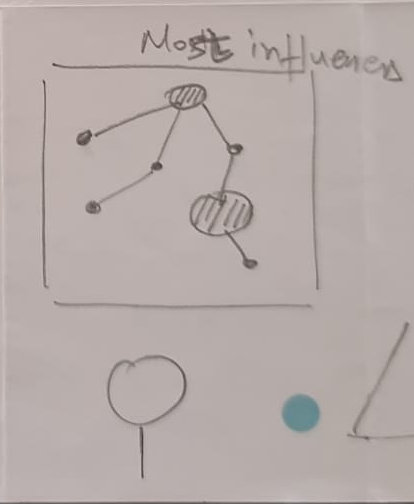 Most influencers